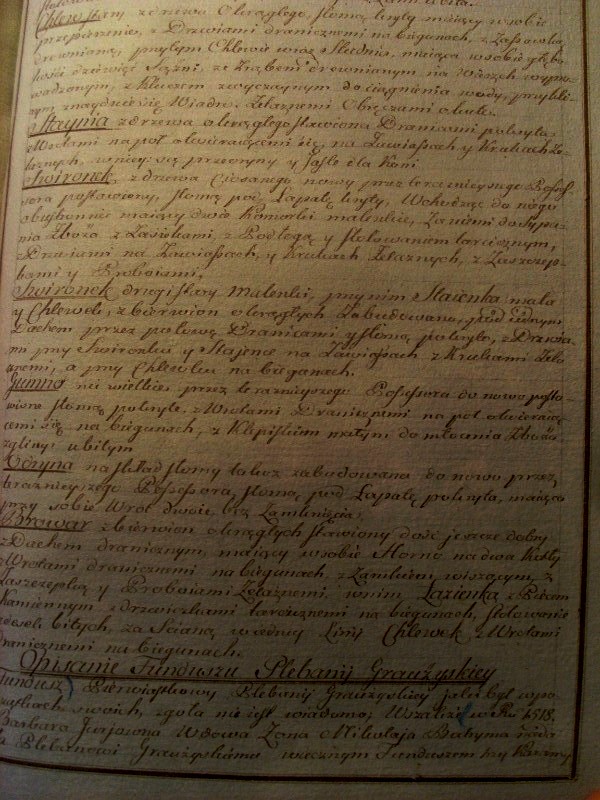 Chlew stary z drzewa okrągłego, słomą kryty maiący w sobie
przepierzenie, z Drzwiami dranicznemi na biegunach, z Zasówką
drewnianą, przytym Chlewu wiąz Slednia, maiąca w sobie głębo-
kości dziewięć Sążni, ze Zrębem drewnianym na
wadzonym, z Kluczem zwyczaynym do ciągnienia wody, przy kto-
rym znayduie się Wiadro Żelaznemi Obręczami okute.
Staynia z drzewa okrągłego stawiona Dranicami pokryta
z Wrotami na poł otwieraiącemi się, na Zawiasach y Krukach Że-
laznych, w niey: są przegrody y Jasle dla Koni
Swironek, z drzewa Ciosanego nowy przez teraznieyszego Posses-
sora postawiony, słomą pod Łapatę kryty, Wchodząc do niego
maiący dwie Komorki maleńkie, Za niemi do Sypa-
nia Zboża z Zasiekami, z Podłogą y stołowaniem tarcicznym,
z Drzwiami na Zawiasach, y Krukach Żelaznych, z Zaszczep-
kami y Proboiami,
Swironek drugi stary Maleńki, przy nim Staienka mała
y Chlewek, z bierwion okrągłych Zabudowane, pod iednym
Dachem przez połowę Dranicami y słomą pokryte, z Drzwia-
mi przy Swironku y Staience na Zawiasach z Krukami Żela-
znemi, a przy Chlewku na biegunach.
Gumno nie wielkie przez teraznieyszego Possesora do nowo posta-
wione słomą pokryte, z Wrotami Dranicznemi na poł otwieraią-
cemi się na biegunach, z Klepiskiem małym do młocenia Zboża
z gliny ubitym
Odryna na skład słomy także zabudowana do nowo przez
teraznieyszego Possesora, słomą pod Łapatę pokryta, maiąca
przy sobie Wrot dwoie, bez Zamknięcia,
Browar z bierwion okrągłych stawiony dość ieszcze dobry
z Dachem dranicznym, maiący w sobie Horno na dwa Kotły
z Wrotami dranicznemi na biegunach, z Zamkiem wiszącym, z
Zaszczepką y Proboiami Żelaznemi, w nim Łazienka z Piecem
Kamiennym z drzwiczkami tarcicznemi na biegunach, stołowanie
bitych, za Scianą w iedney Linij Chlewek z Wrotami
dranicznemi na biegunach.
Opisanie Funduszu Plebanij Graużyskiey
Fundusz Pierwiastkowy Plebanij Graużyskiey iaki był w po-
czątkach swoich, zgoła nie iest wiadomo, Wszakże w Ru 1518.
Barbara Jurjowna Wdowa Żona Mikołaja
Plebanowi Graużyskiemu wiecznym Funduszem